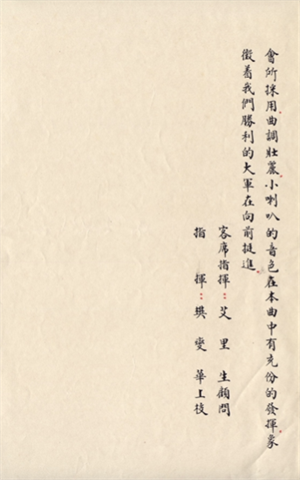 會所採用曲調壯麗.小喇叭的音色在本曲中有充份的發揮象
徵着我們勝利的大軍在向前挺進.
客席指揮：艾里生顧問
指揮：樊燮華上校